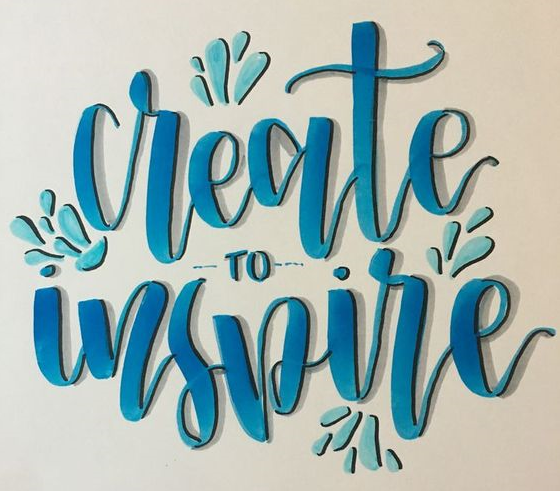 create
TO
inspire